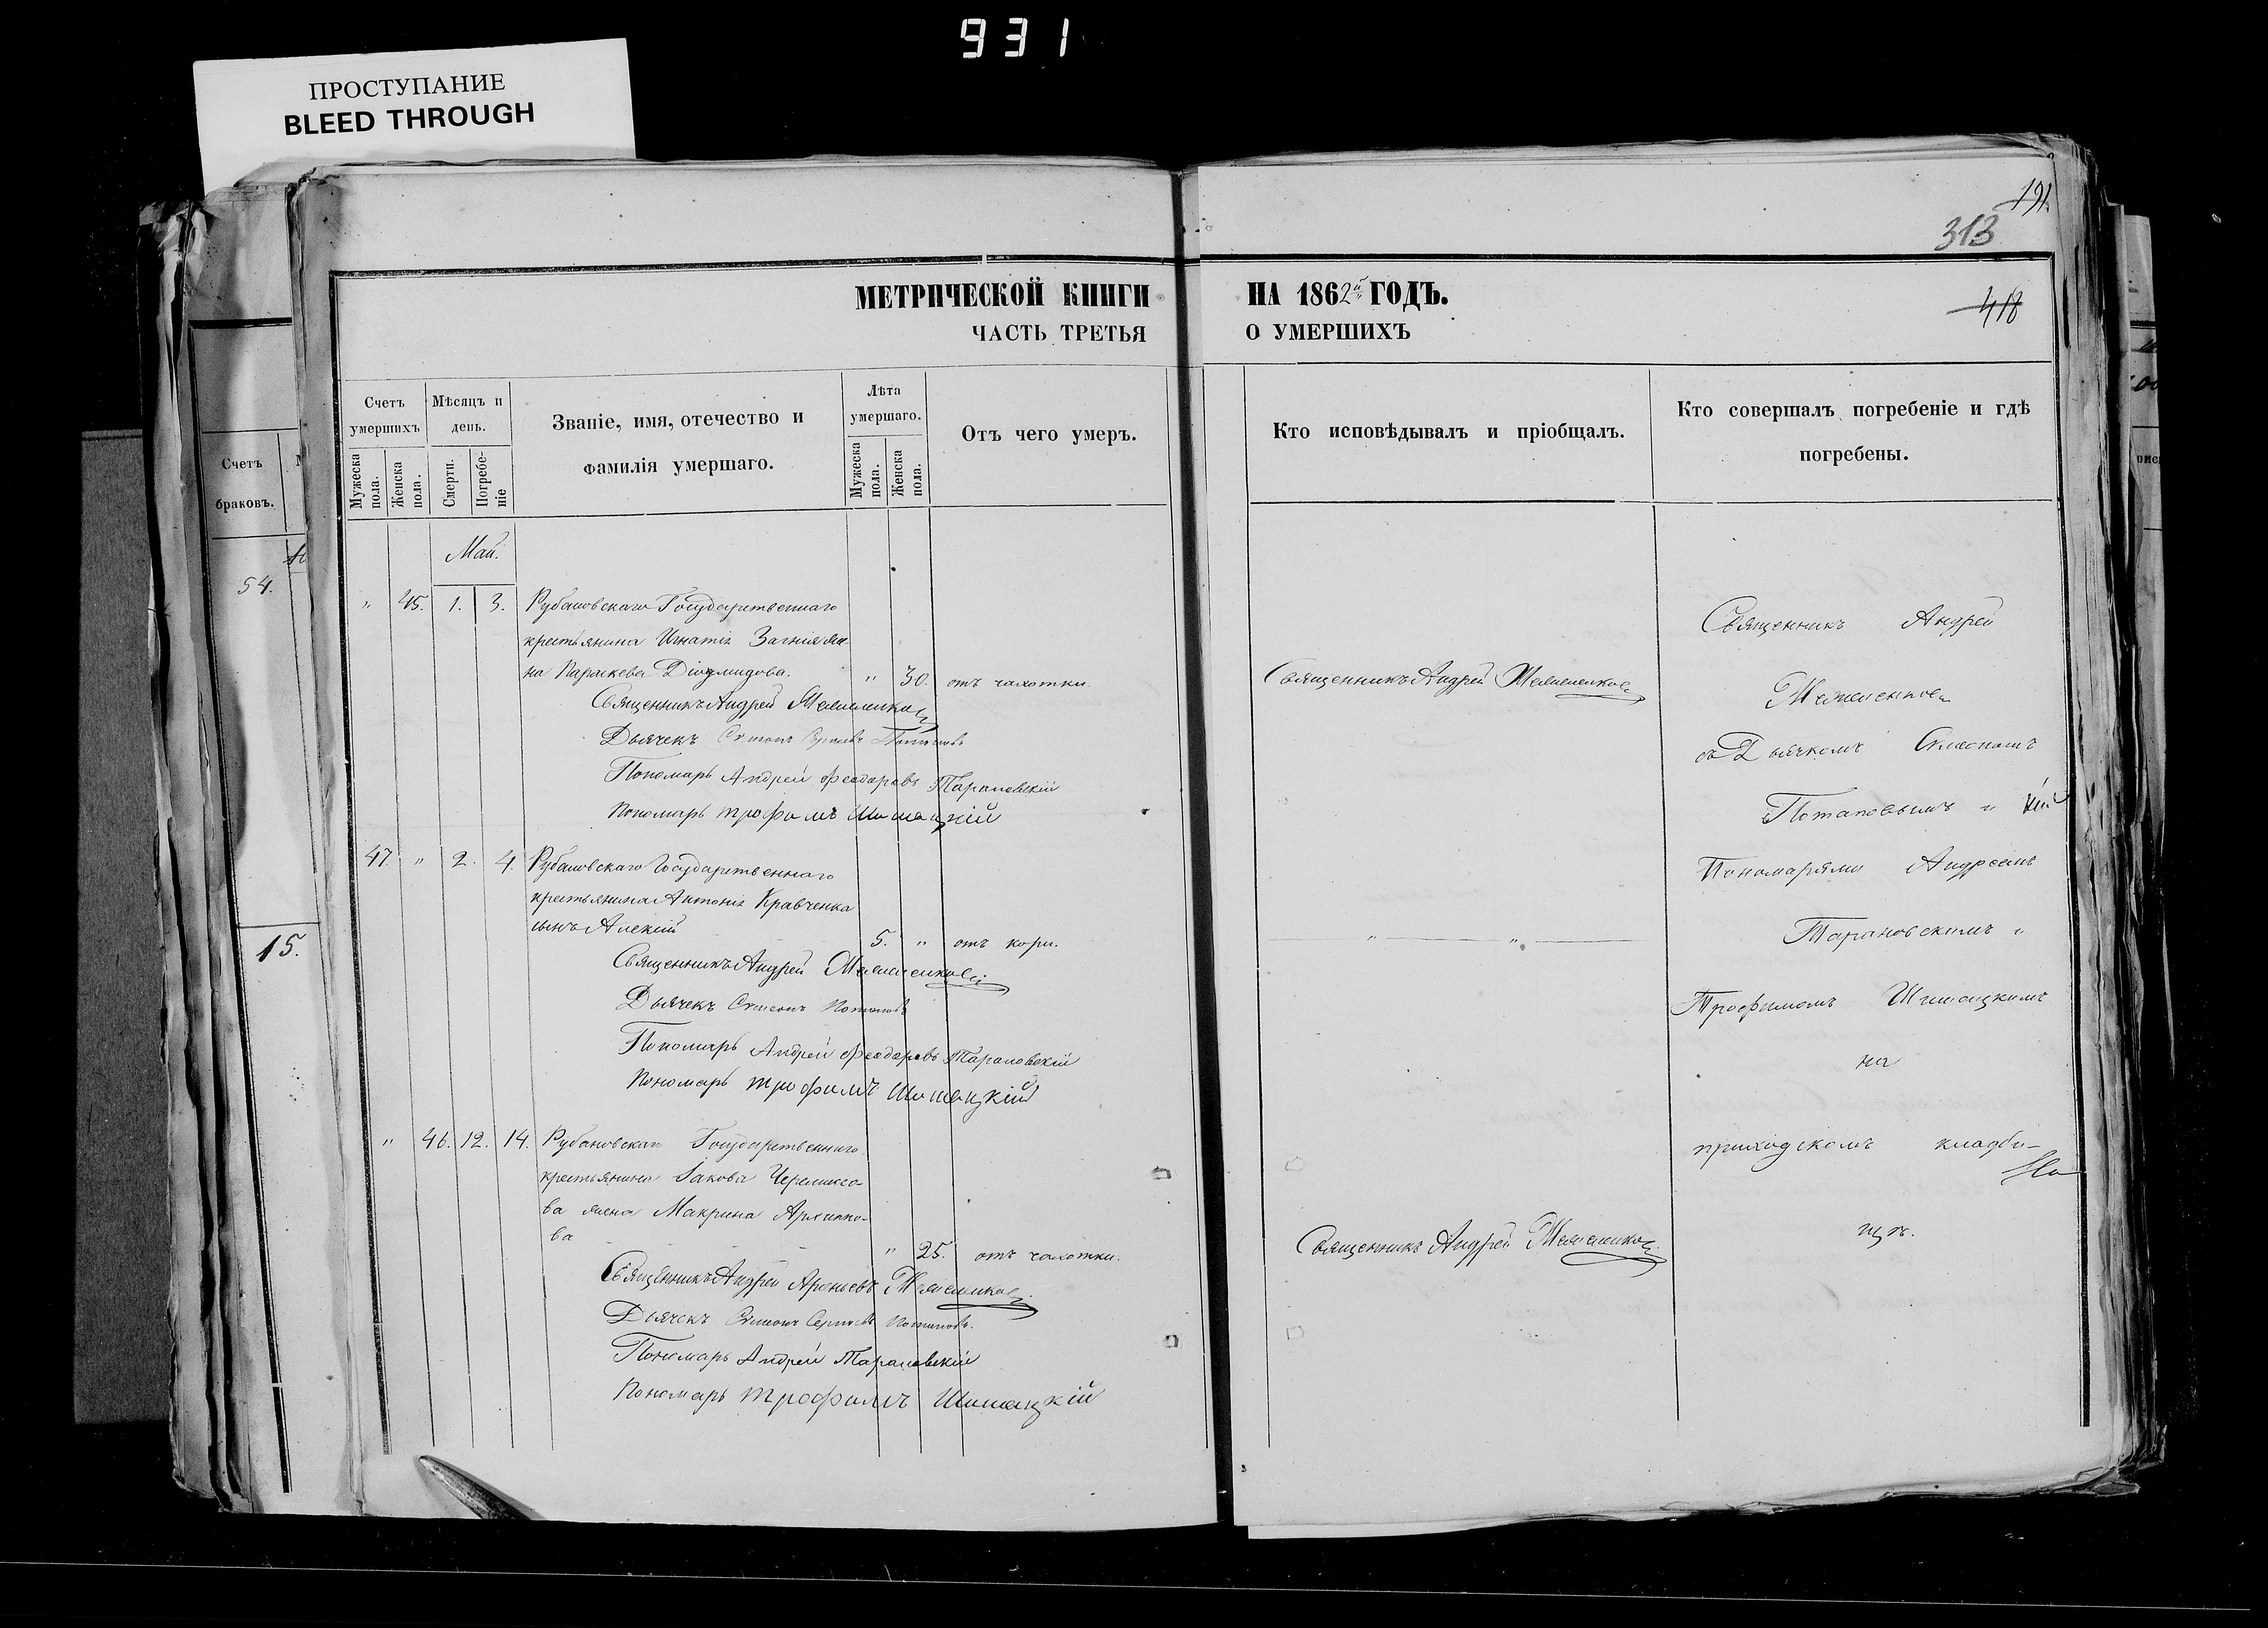 931
ПРОСТУПАНИЕ
BLEED THROUGH
191.
313
418
МЕТРИЧЕСКОЙ КНИГИ НА 1862й ГОДЪ.
ЧАСТЬ ТРЕТЬЯ О УМЕРШИХЪ
Счетъ умершихъ
Мѣсяцъ и день.
Званіе, имя, отечество и фамилія умершаго.
Лѣта умершаго.
Отъ чего умеръ.
Кто исповѣдывалъ и пріобщалъ.
Кто совершалъ погребеніе и гдѣ погребены.
Мужеска пола.
Женска пола.
Смерти.
Погребеніе
Мужеска пола.
Женска пола.
Счетъ браковъ.
54.
15.
Май.
" 45. 1. 3. Рубановскаго Государственнаго
крестьянина Игнатія
на Параскева Діомидова. " 30. отъ чахотки.
Священникъ Андрей
Дьячекъ Симеонъ Сергиевъ Потаповъ
Пономарь Андрей Феодоровъ Тарановскій
Пономарь трофимъ Шишацкій
47. " 2. 4. Рубановскаго Государственнаго
крестьянина Антонія Кравченка
сынъ Алексій 5. " отъ кори.
Священникъ Андрей
Дьячекъ Симеонъ Потаповъ
Пономарь Андрей Феодоровъ Тарановскій
Пономарь трофимъ Шишацкій
" 46. 12. 14. Рубановскаго Государственнаго
крестьянина Іакова
ва жена Макрина Архиппо-
ва " 25. отъ чахотки.
Священникъ Андрей Арсеньевъ
Дьячекъ Симеонъ Сергиевъ Потаповъ.
Пономарь Андрей Тарановскій
Пономарь трофимъ Шишацкій
Священникъ Андрей
" "
Священникъ Андрей
Священникъ Андрей
съ Дьячкомъ Симеономъ
Потаповымъ и
Пономарями Андреемъ
Тарановскимъ и
Трофимомъ Шишацкимъ
на
приходскомъ кладби-
щѣ.